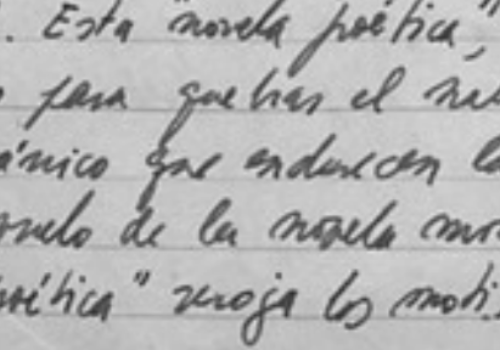 . Esta "novela poética,"
para quebrar el
ánico que endurecen l
de la novela mo
oética" recoja los moti